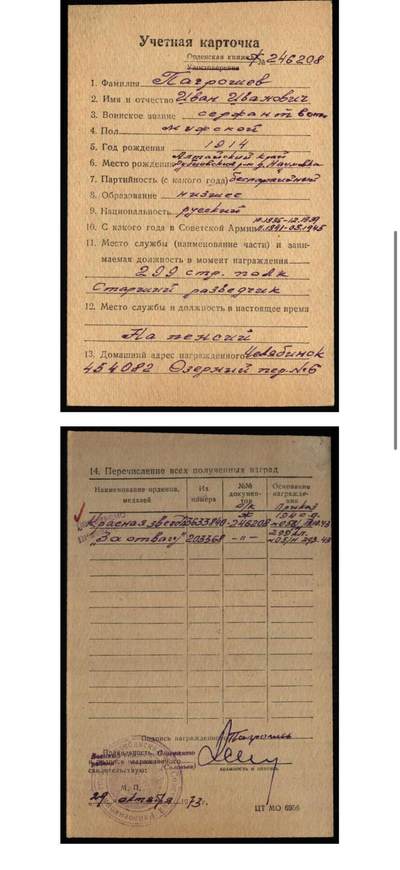 Учетная карточка
Орденская книжка Ж № 246208
Удостоверение
1. Фамилия Пагрошев
2. Имя и отчество Иван Иванович
3. Воинское звание сержант
4. Пол мужской
5. Год рождения 1914
Алтайский край
6. Место рождения
7. Партийность (с какого года) беспартийный
8. Образование низшее
9. Национальность русский
10. С какого года в Советской Армии
11. Место службы (наименование части) и зани-
маемая должность в момент награждения
299 стр. полк
Старший разведчик
12. Место службы и должность в настоящее время
На пенсии
13. Домашний адрес награжденного Челябинск
454082 Озерный пер. №6
14. Перечисление всех полученных наград
Наименование орденов, медалей
Их номера
№№ документов
Основание награждения
о/к Ж
Приказ
Красная звезда 3633840 246208
"За отвагу" 203368 -"-
Подпись награжденного
Правильность
свидетельствую:
должность и подпись
М. П.
29 октября 1973 г.
ЦТ МО